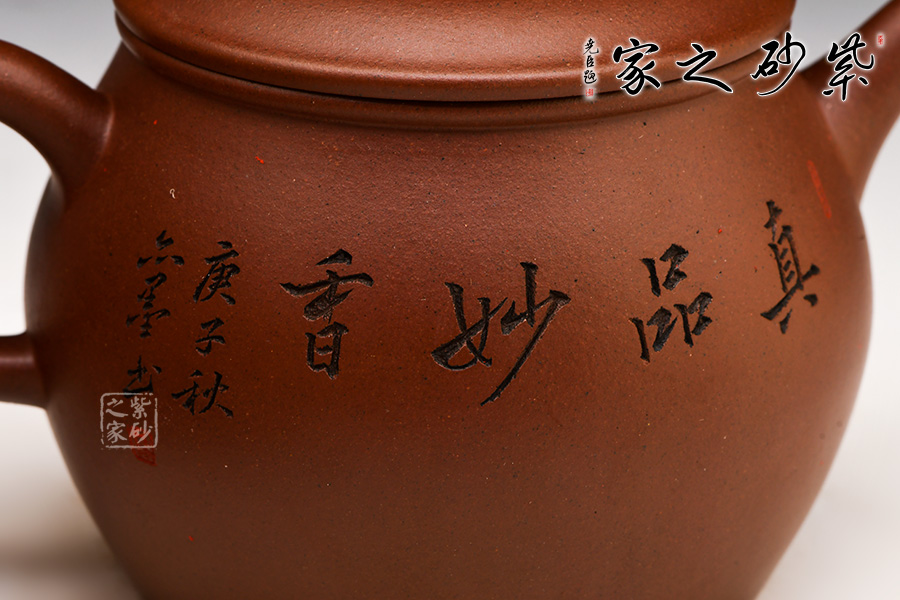 紫砂之家
尧臣题
真品妙香
庚子秋
亦墨书
紫砂之家